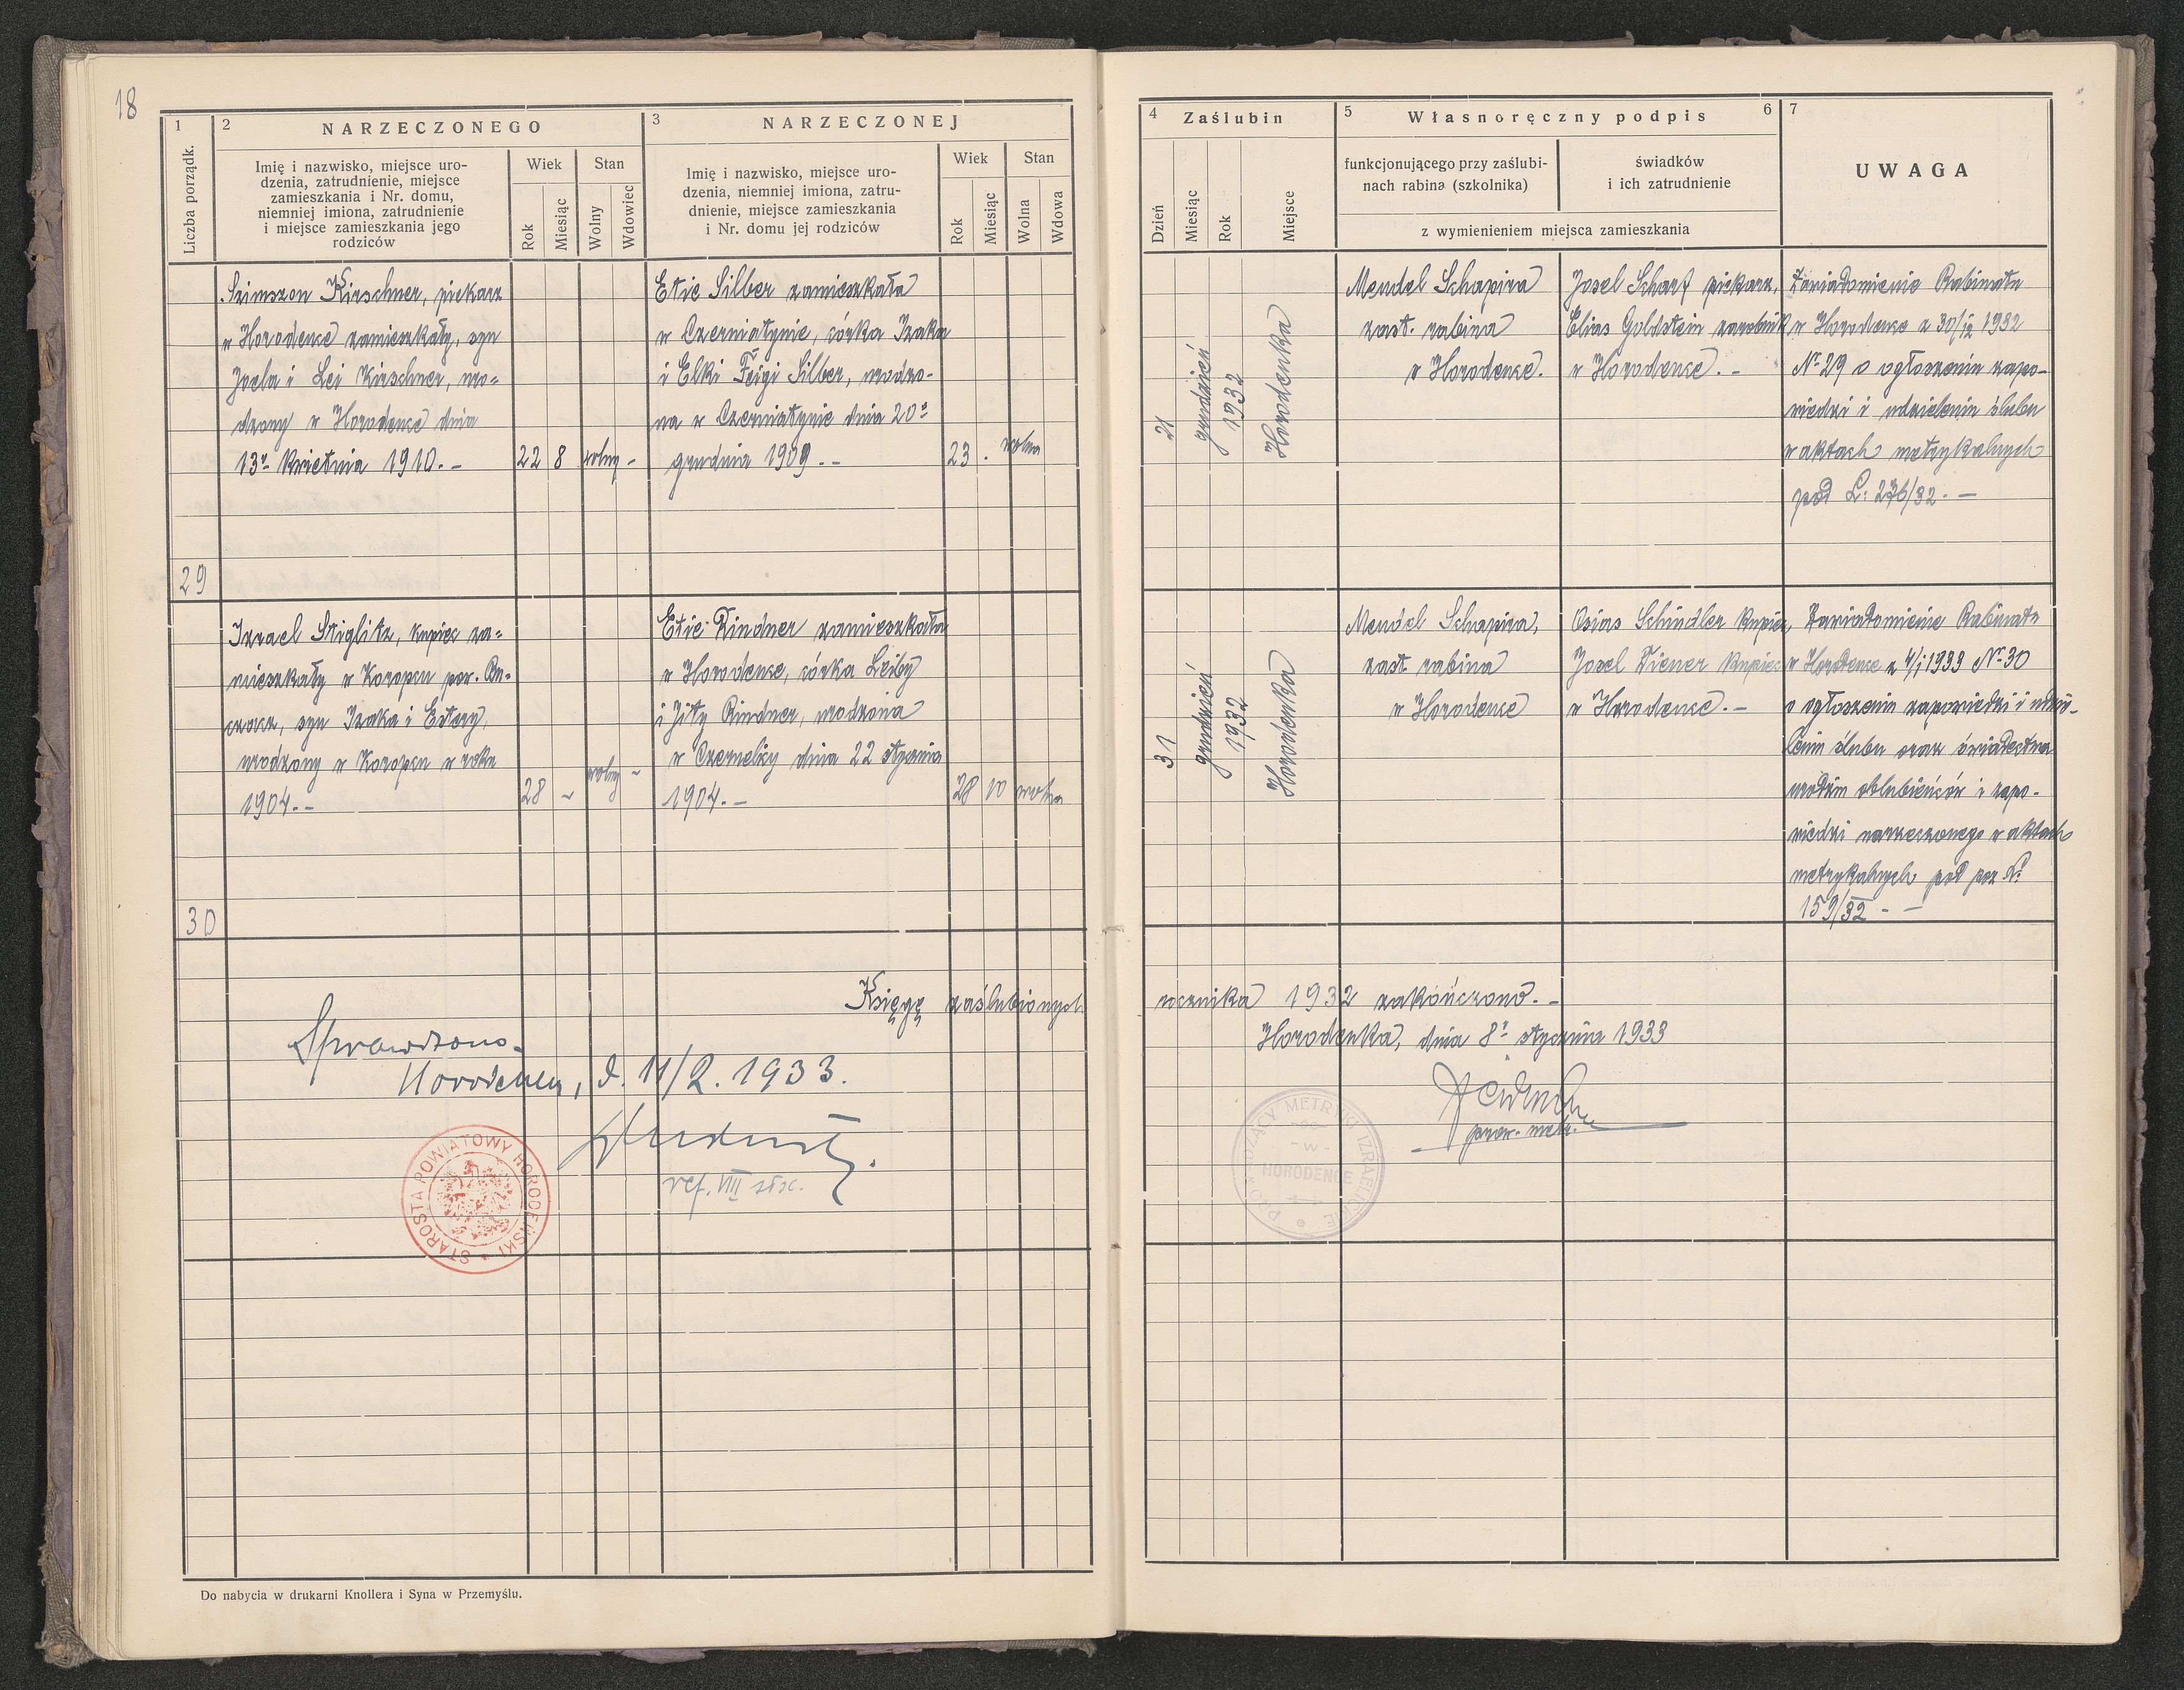 18
1
2 NARZECZONEGO
3 NARZECZONEJ
Liczba porządk.
Imię i nazwisko, miejsce uro-
dzenia, zatrudnienie, miejsce
zamieszkania i Nr. domu,
niemniej imiona, zatrudnienie
i miejsce zamieszkania jego
rodziców
Wiek
Stan
Rok
Miesiąc
Wolny
Wdowiec
Imię i nazwisko, miejsce uro-
dzenia, niemniej imiona, zatru-
dnienie, miejsce zamieszkania
i Nr. domu jej rodziców
Wiek
Stan
Rok
Miesiąc
Wolna
Wdowa
4 Zaślubin
5 Własnoręczny podpis 6
7
Dzień
Miesiąc
Rok
Miejsce
funkcjonującego przy zaślubi-
nach rabina (szkolnika)
świadków
i ich zatrudnienie
z wymienieniem miejsca zamieszkania
UWAGA
29
Szimszon Kirschner, piekarz
w Horodence zamieszkały, syn
Joela i Lei Kirschner, uro=
dzony w Horodence dnia
13º kwietnia 1910.–
22 8 wolny –
Etie Silber zamieszkała
w Czerniatynie, córka Izaka
i Elki Feigi Silber, urodzo-
na w Czerniatynie dnia 20º
grudnia 1909.–
23 . wolna
21
grudzień
1932
Horodenka
Mendel Schapira
zast. rabina
w Horodence.
Josel Scharf piekarz,
Elias Goldstein zarobnik
w Horodence.–
Zawiadomienie Rabinatu
w Horodence z 30/12 1932
Nº 29 o ogłoszeniu zapo-
wiedzi i udzieleniu ślubu
w aktach metrykalnych
pod L: 276/32.–
30
Izrael Stiglitz, kupiec za=
mieszkały w Koropcu pow. Bu=
czacz, syn Izaka i Estery,
urodzony w Koropcu w roku
1904.–
28 – wolny –
Etie Rindner zamieszkała
w Horodence, córka Leiby
i Jity Rindner, urodzona
w Czernelicy dnia 22 stycznia
1904.–
28 10 wolna
31
grudzień
1932
Horodenka
Mendel Schapira,
zast. rabina
w Horodence
Osias Schindler kupiec,
Josel Wiener kupiec
w Horodence.–
Zawiadomienie Rabinatu
w Horodence z 4/1 1933 Nº 30
o ogłoszeniu zapowiedzi i udzie-
leniu ślubu oraz świadectwa
urodzin oblubieńców i zapo-
wiedzi narzeczonego w aktach
metrykalnych pod poz N:
159/32 – –
Księgę zaślubionych rocznika 1932 zakończono.–
Horodenka, dnia 8º stycznia 1933
prow. metr.
PROWADZĄCY METRYKI IZRAELICKIE
- W -
HORODENCE
Sprawdzono.
Horodenka, d. 11/2. 1933.
ref.
STAROSTA POWIATOWY HORODEŃSKI
Do nabycia w drukarni Knollera i Syna w Przemyślu.